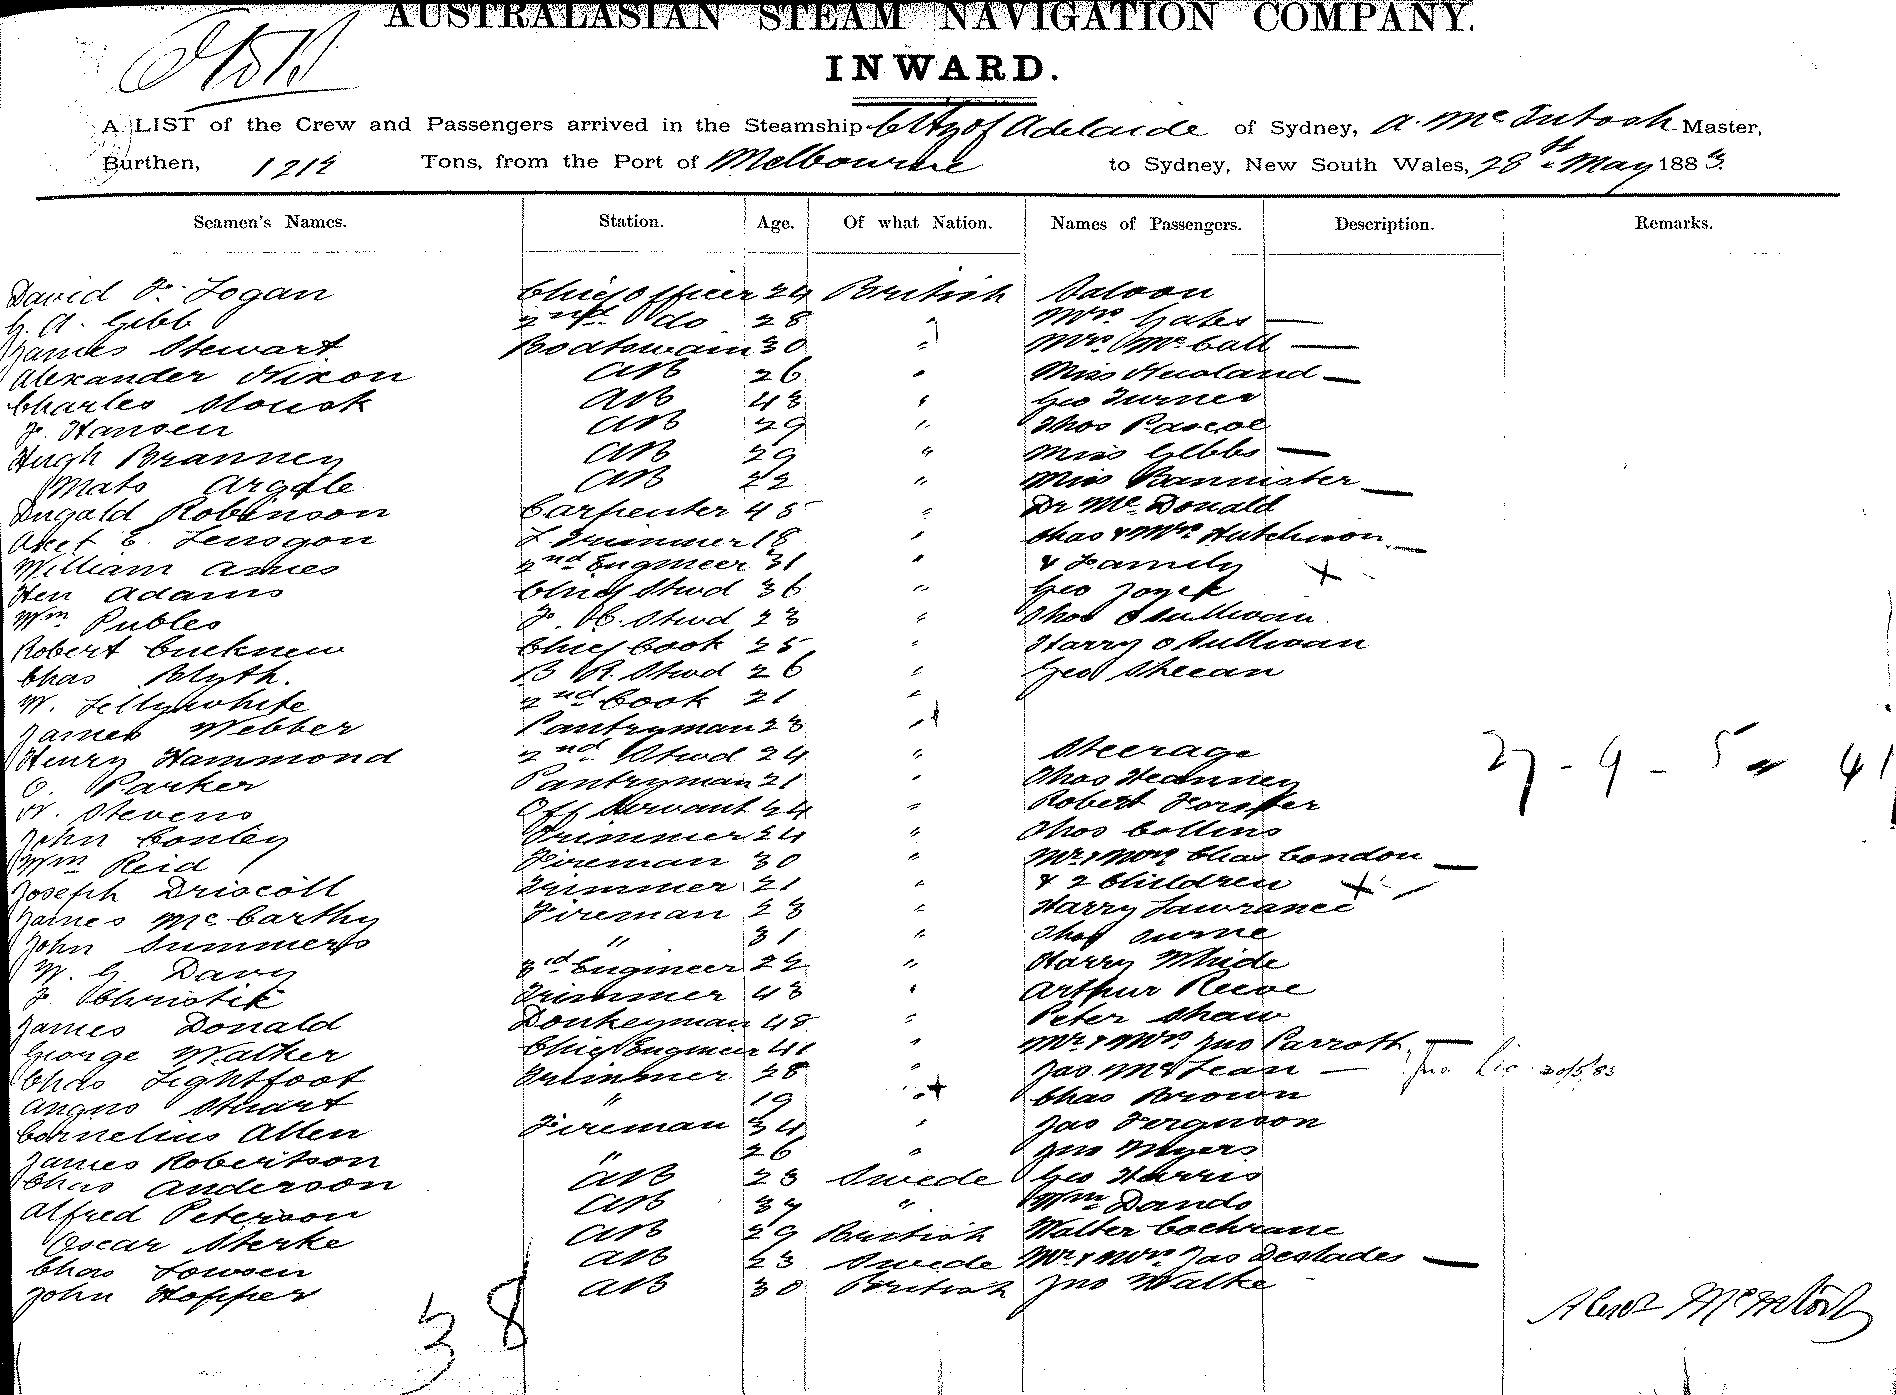 AUSTRALASIAN STEAM NAVIGATION COMPANY.
INWARD.
A LIST of the Crew and Passengers arrived in the Steamship City of Adelaide of Sydney, A. McIntosh Master,
Burthen, 1212 Tons, from the Port of Melbourne to Sydney, New South Wales, 28th May 1883
Seamen's Names. Station. Age. Of what Nation. Names of Passengers. Description. Remarks.
David Logan Chief Officer 24 British Saloon
G. A. Gibb 2nd do 28 " Mrs Gates —
James Stewart Boatswain 30 " Mrs McCall —
Alexander Nixon AB 26 " Miss —
Charles AB 43 " Geo Turner
J. Hansen AB 29 " Thos Pascoe
Hugh Branney AB 29 " Miss Gibbs —
Mats AB 22 " Miss Bannister —
Dugald Robinson Carpenter 45 " Dr McDonald
E. 18 " Chas & Mrs Hutchison —
William Amies 2nd Engineer 31 " & Family
Hen Adams Chief Stwd 36 " Geo
Wm Publes Stwd 23 " Thos OSullivan
Robert Chief Cook 25 " Harry OSullivan
Chas Blyth. B R. Stwd 26 " Geo Sheean
W. Lillywhite 2nd Cook 21 "
James Webber Pantryman 23 "
Henry Hammond 2nd Stwd 24 " Steerage
O. Parker Pantryman 21 " Thos Heanney
W. Stevens Off Servant 24 " Robert Forster
John Conley Trimmer 24 " Thos Collins
Wm Reid Fireman 30 " Mr & Mrs Chas Condon —
Joseph Driscoll Trimmer 21 " & 2 Children
James McCarthy Fireman 23 " Harry Lawrance
John Summers " 31 " Thos
W. G. Davy 3rd Engineer 22 " Harry
J. Christie Trimmer 43 " Arthur Reeve
James Donald Donkeyman 48 " Peter Shaw
George Walker Chief Engineer 41 " Mr & Mrs Jno Parroth —
Chas Lightfoot Trimmer 28 " Jas McLean —
Angus Stuart " 19 " Chas Brown
Cornelius Allen Fireman 34 " Jas Ferguson
James Robertson " 26 " Jno Myers
Chas Anderson AB 23 Swede Geo Harris
Alfred Peterson AB 37 " Wm Dando
Oscar Sterke AB 29 British Walter Cochrane
Chas Lowsen AB 23 Swede Mr & Mrs Jas Deslades —
John Hopper AB 30 British Jno Walke
38